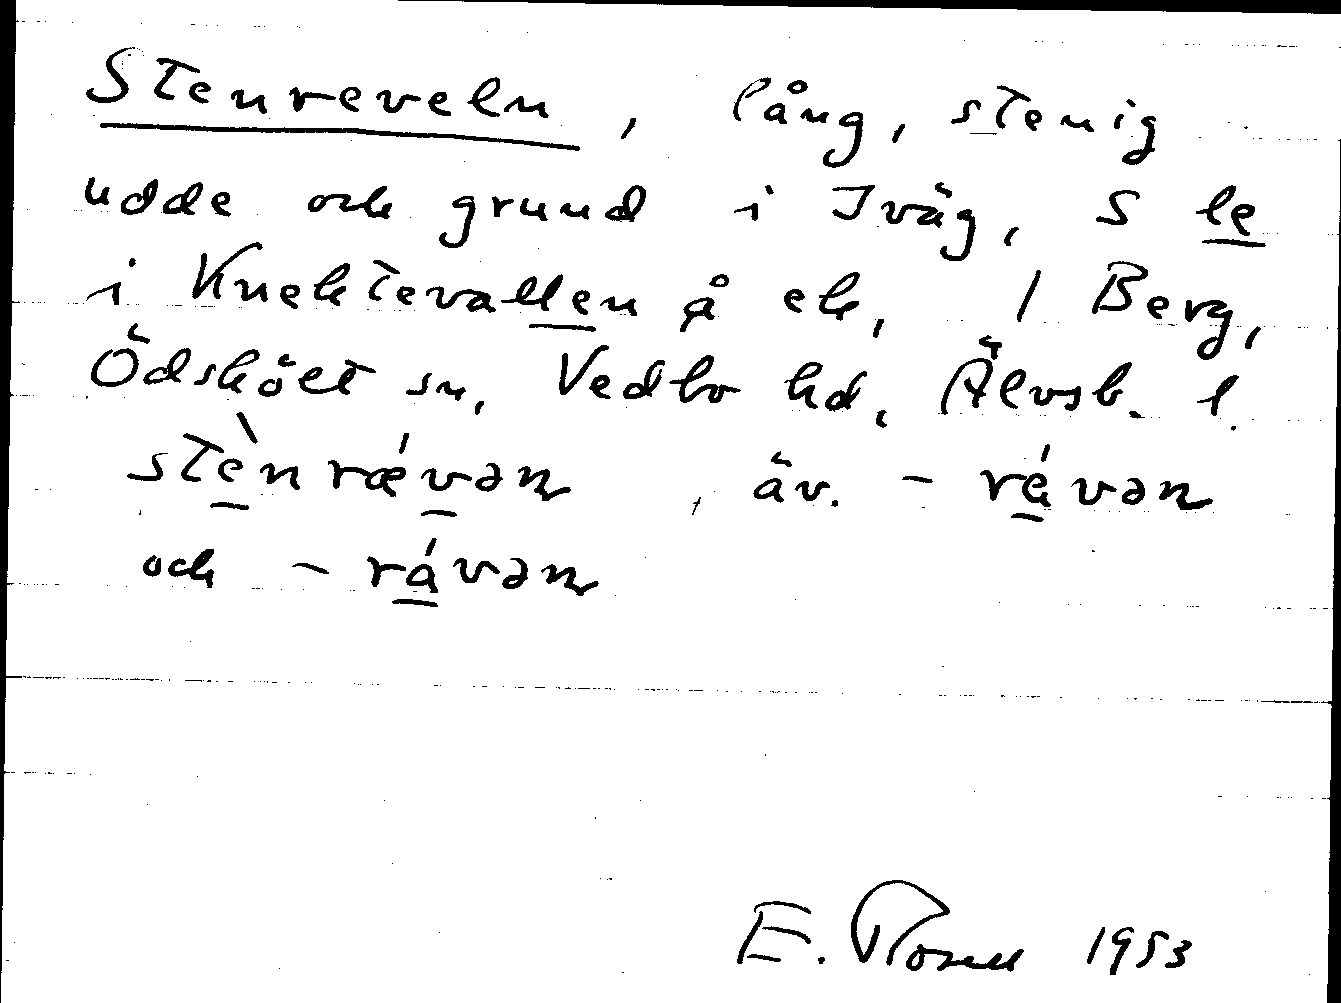 Stenreveln, lång, stenig
udde och grund i Iväg, S le
i Knektevallen å ek, 1 Berg,
Ödskölt sn, Vedbo hd, Älvsb. l.
stènrǽvən, äv. - révən
och - rávən
E. 1953